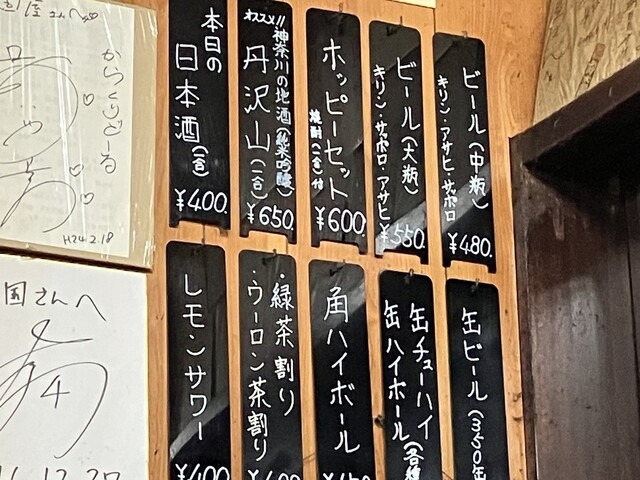 ビール(中瓶)
キリン・アサヒ・サッポロ
¥480.
ビール(大瓶)
キリン・サッポロ・アサヒ
¥550.
ホッピーセット
焼酎(一合)付
¥600.
オススメ!!
神奈川の地酒(純米吟醸)
丹沢山(一合)
¥650.
本日の
日本酒(一合)
¥400.
缶ビール(350缶
缶チューハイ
缶ハイボール(各種
角ハイボール
・緑茶割り
・ウーロン茶割り
レモンサワー
¥400
からくりどーる
H24.2.18
国さんへ